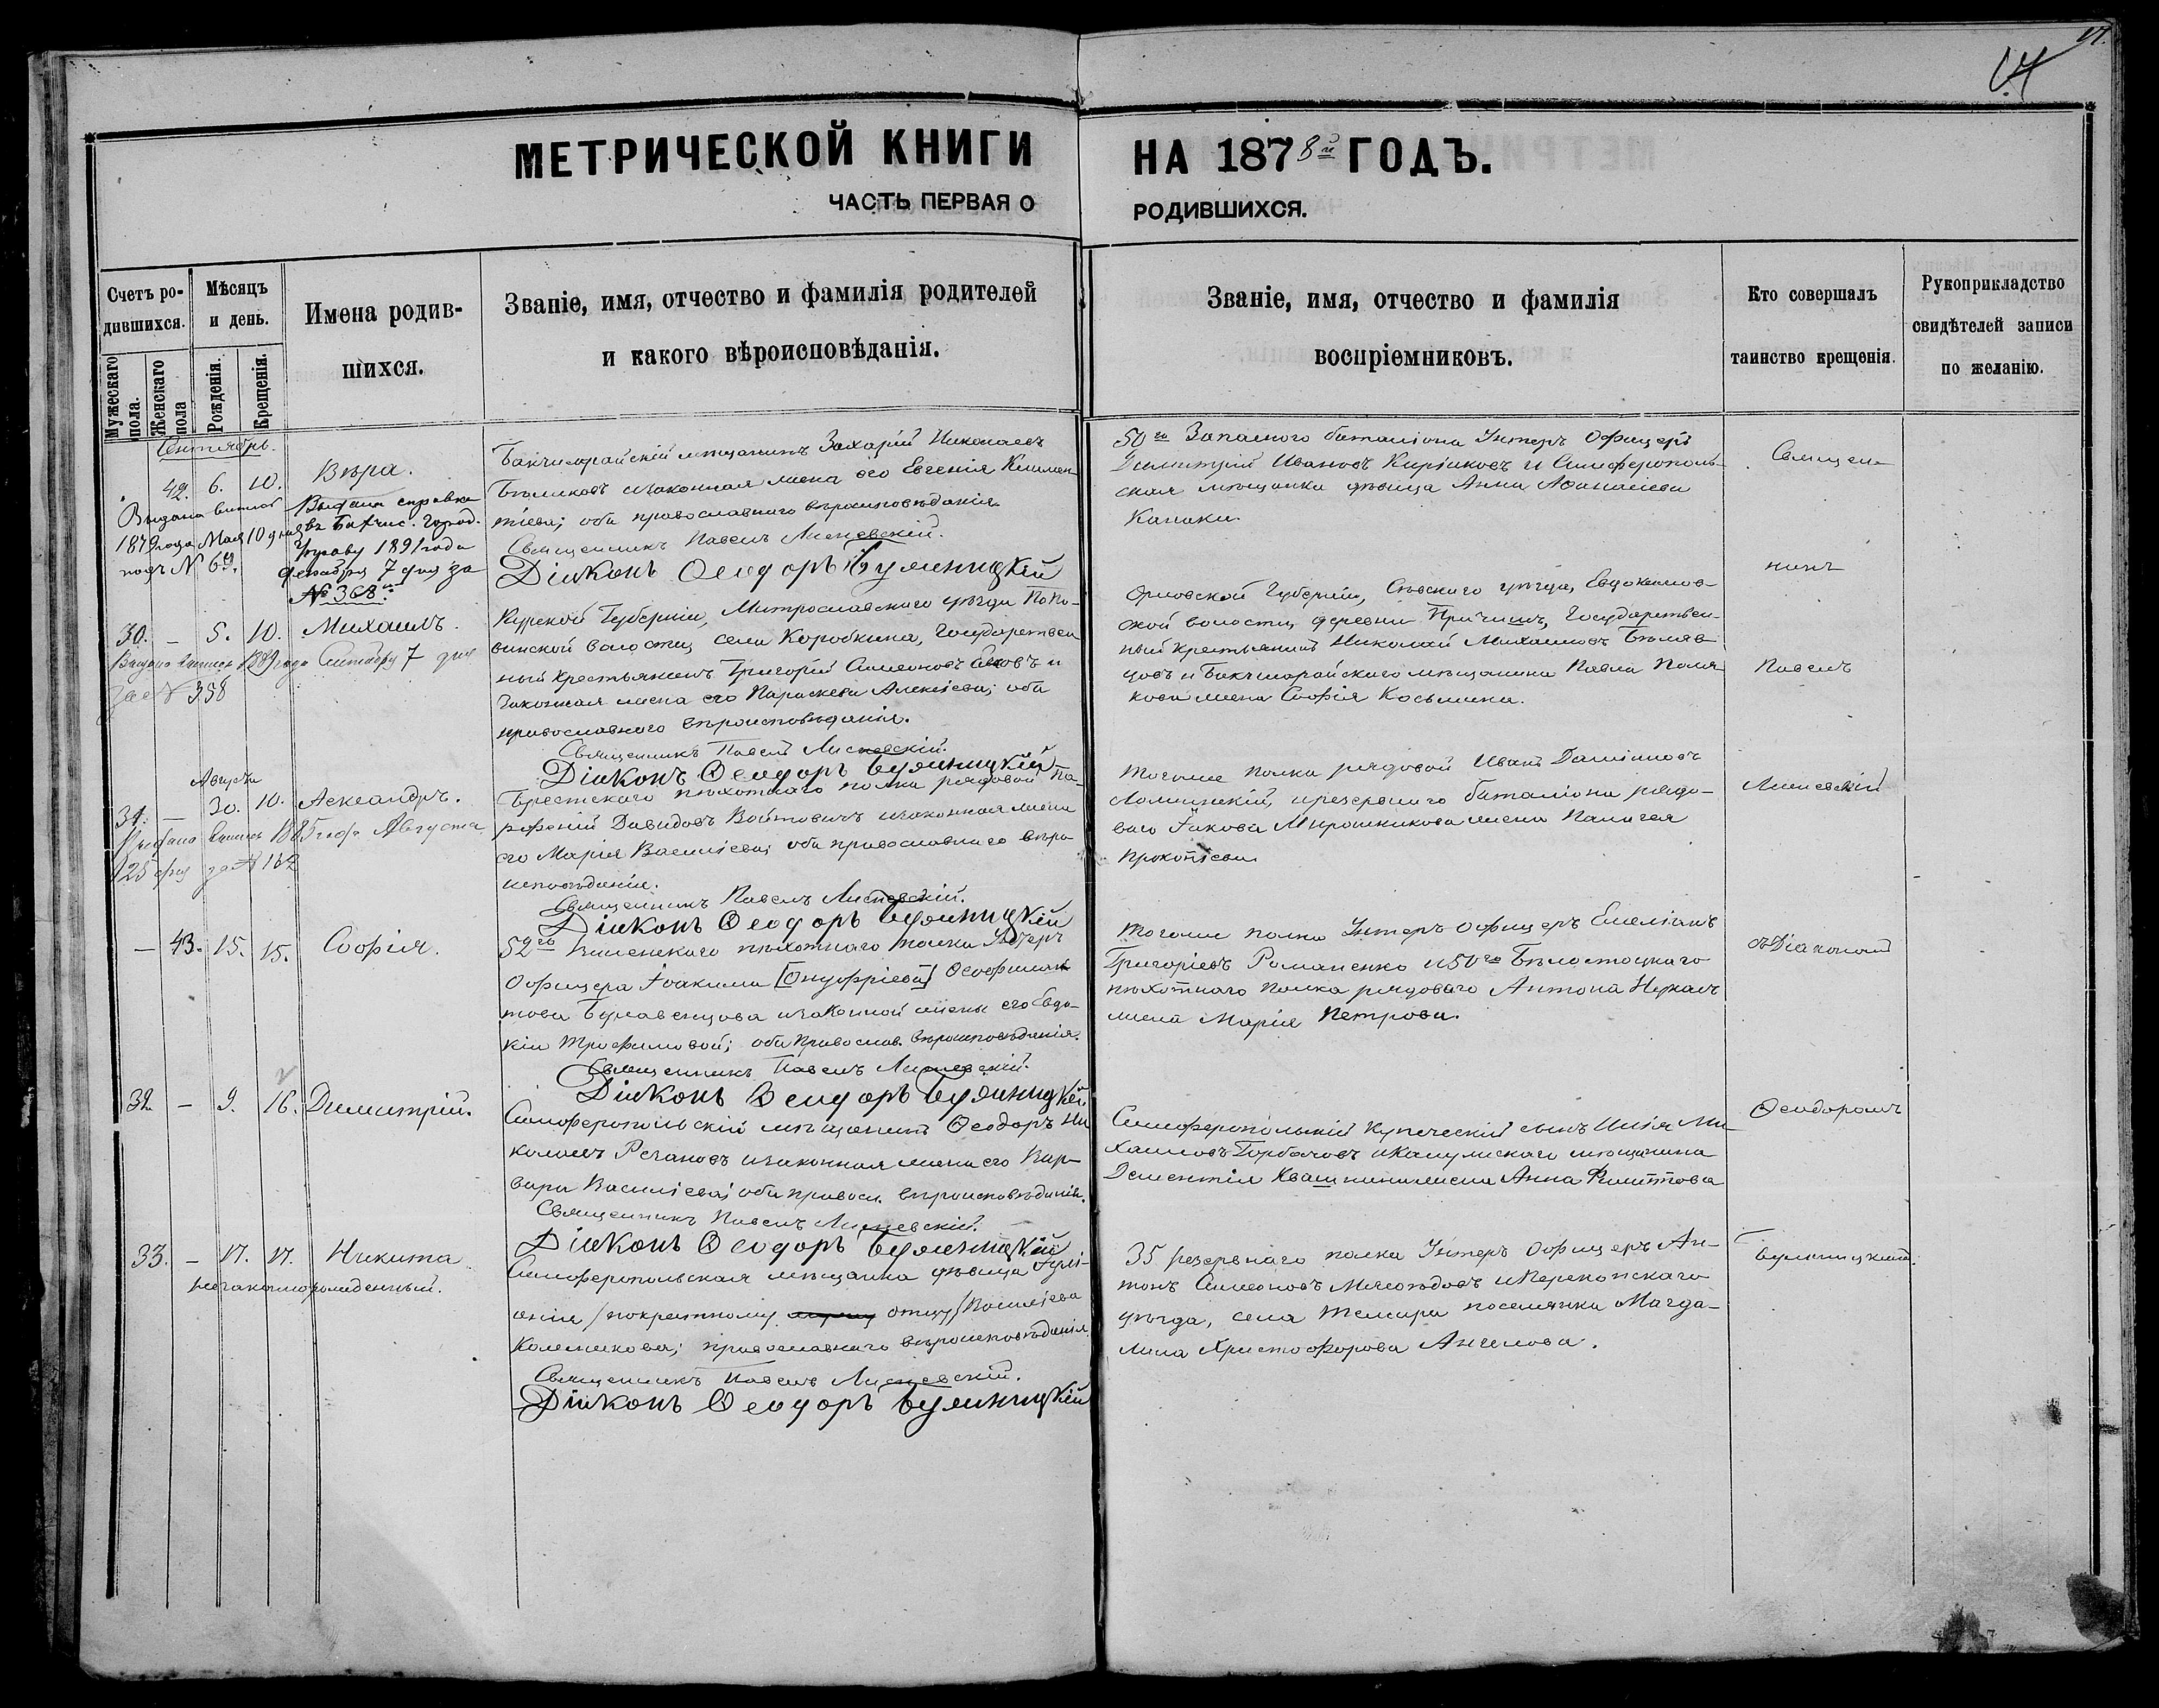 17.
МЕТРИЧЕСКОЙ КНИГИ НА 1878й ГОДЪ.
ЧАСТЬ ПЕРВАЯ О РОДИВШИХСЯ.
Счетъ ро-
дившихся.
Мужескаго
пола.
Женскаго
пола
Мѣсяцъ
и день.
Рожденія.
Крещенія.
Имена родив-
шихся.
Званіе, имя, отчество и фамилія родителей
и какого вѣроисповѣданія.
Званіе, имя, отчество и фамилія
воспріемниковъ.
Кто совершалъ
таинство крещенія.
Рукоприкладство
свидѣтелей записи
по желанію.
Сентябрь.
42. 6. 10. Вѣра.
Выдана
1879 года Мая 10 дня
подъ №
Выдана справка
въ Бахчис. город.
управу 1891 года
декабря 7 дня за
№ 368.
Бахчисарайскій мѣщанинъ Захарій Николаевъ
Бѣликовъ и законная жена его Евгенія Климен-
тіева; оба православнаго вѣроисповѣданія.
Священникъ Павелъ
Діаконъ Ѳеодоръ
50го Запаснаго баталіона Унтеръ Офицеръ
Димитрій Ивановъ Кирьяковъ и Симферополь-
ская мѣщанка дѣвица Анна Аѳанасіева
Канаки.
30. – 5. 10. Михаилъ.
Выдана 1889 года Сентября 7 дня
за № 358
Курской Губерніи, уѣзда Попо-
винской волости села Коробкина, Государствен
ный крестьянинъ Григорій Симеоновъ и
законная жена его Параскева Алексіева; оба
православнаго вѣроисповѣданія.
Священникъ Павелъ
Діаконъ Ѳеодоръ
Орловской Губерніи, Сѣвскаго уѣзда, Евдокимов-
ской волости деревни Государствен-
ный крестьянинъ Николай Михаиловъ Бѣляв-
цовъ и Бахчисарайскаго мѣщанина Павла Поля-
кова жена Софія Косьмина.
Августа
31. – 30. 10. Александръ.
Выдана 1885 года Августа
25 дня за № 132
Брестскаго пѣхотнаго полка рядовой Па-
рфеній Давидовъ Войтовичъ и законная жена
его Марія Василіева; оба православнаго вѣро-
исповѣданія.
Священникъ Павелъ
Діаконъ Ѳеодоръ
Тогоже полка рядовой Иванъ Даміановъ
резервнаго баталіона рядо-
ваго Іакова Мирошникова жена Пелагея
Прокопіева
– 43. 15. 15. Софія.
52го Виленскаго пѣхотнаго полка Унтеръ
Офицера Іоакима [Онуфріева]
това и законной жены его Евдо-
кіи Трофимовой; оба православ. вѣроисповѣданія.
Священникъ Павелъ
Діаконъ Ѳеодоръ
Тогоже полка Унтеръ Офицеръ Емеліанъ
Григоріевъ Романенко и 50го Бѣлостоцкаго
пѣхотнаго полка рядоваго Антона
жена Марія Петрова.
32. – 9. 16. Димитрій.
Симферопольскій мѣщанинъ Ѳеодоръ Ни-
колаевъ Резановъ и законная жена его Вар-
вара Василіева; оба правосл. вѣроисповѣданія.
Священникъ Павелъ
Діаконъ Ѳеодоръ
Симферопольскій купеческій сынъ Илія Ми-
хаиловъ Горбачовъ и Калужскаго мѣщанина
Дементія Квашнина жена Анна Филиппова
33. – 17. 17. Никита
незаконнорожденный.
Симферопольская мѣщанка дѣвица Іулі-
анія /по крестному отцу/ Василіева
Колесникова; православнаго вѣроисповѣданія.
Священникъ Павелъ
Діаконъ Ѳеодоръ
35 резервнаго полка Унтеръ Офицеръ Ан-
тонъ Симеоновъ Мясоѣдовъ и Перекопскаго
уѣзда, села поселянка Магда-
лина Христофорова Ангелова.
Священ-
никъ
Павелъ
съ Діакономъ
Ѳеодоромъ